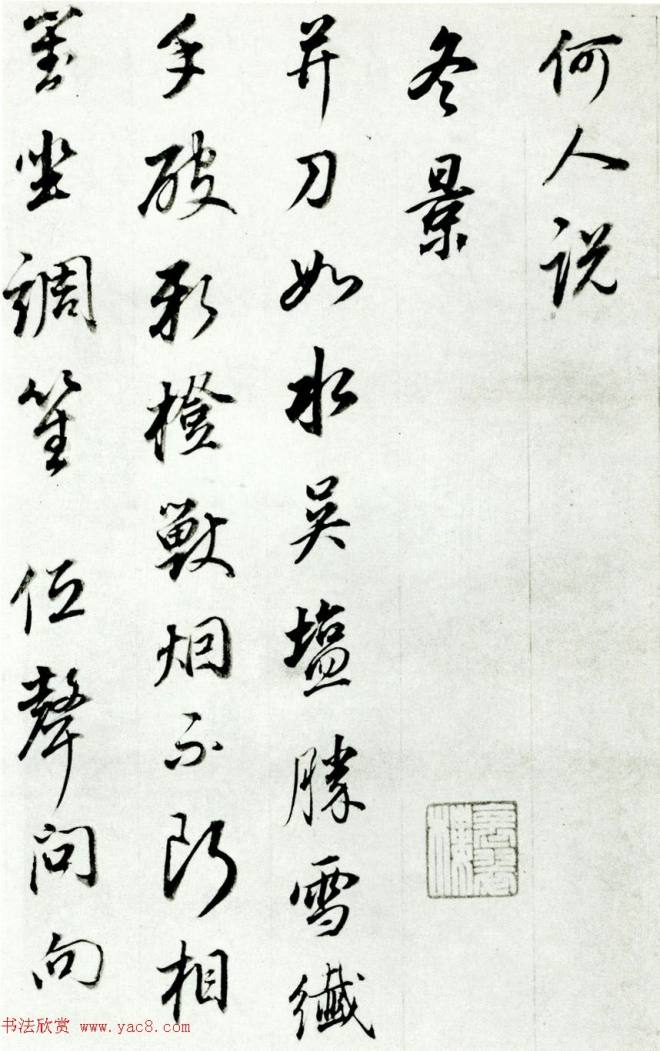 何人説
冬景
并刀如水吴塩勝雪纖
手破新橙獸烟不断相
對坐調笙低聲问向
书法欣赏 www.yac8.com